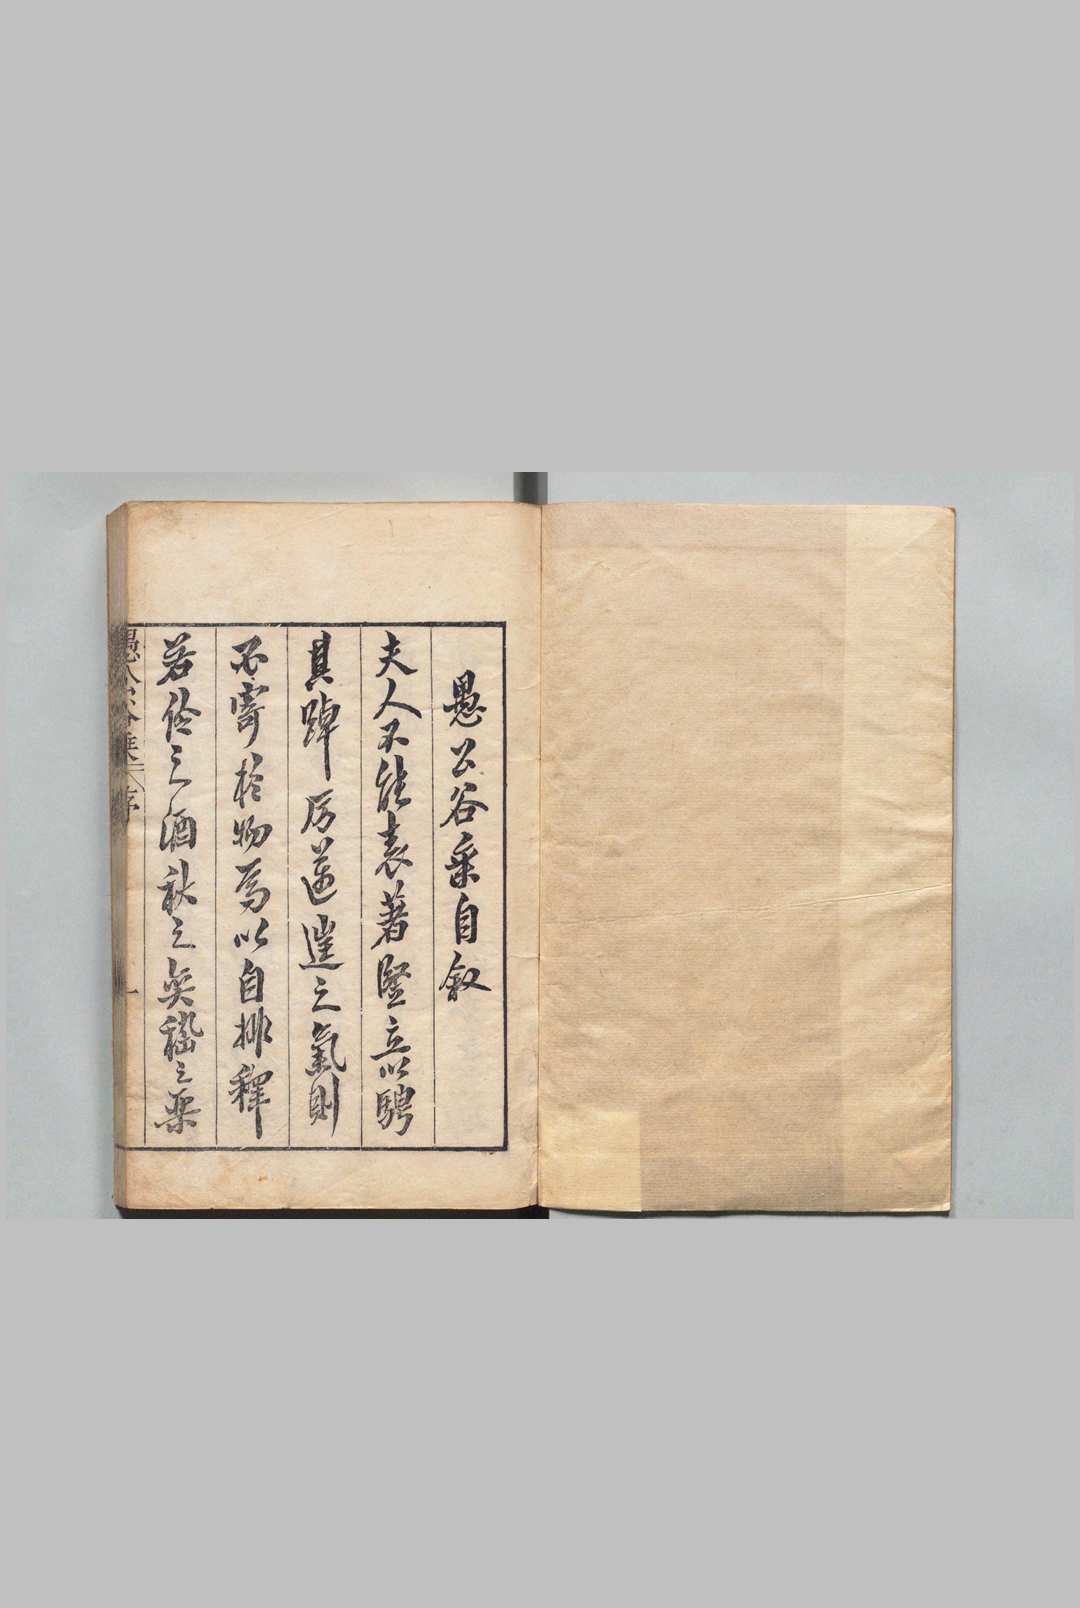 愚公谷乘自叙
夫人不能表著豎立以騁
其踔厉之氣則
不寄於物焉以自排釋
若伶之酒秋之奕嵇之
愚公谷乘 序 一